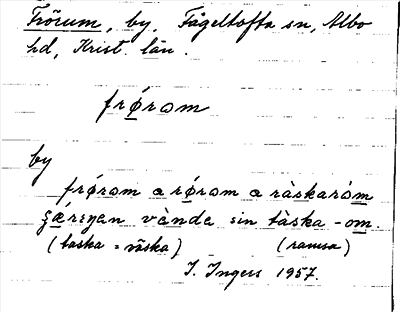 Frörum, by, Fågeltofta sn, Albo
hd, Krist. län.
frǿrom
by
frǿrom a rǿrom a ràskaròm
vànda sin tàska - om.
(taska = väska) (ramsa)
I. Ingers 1957.